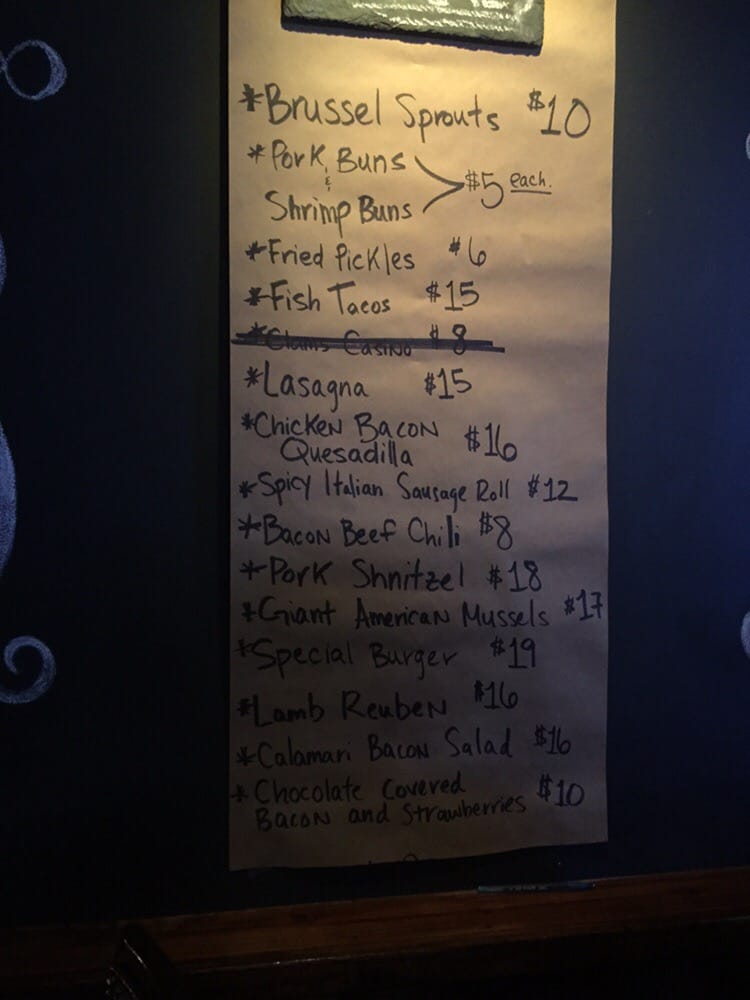 *Brussel Sprouts $10
*Pork Buns
&
Shrimp Buns
$5 each.
*Fried Pickles $6
*Fish Tacos $15
*Clams Casino $8
*Lasagna $15
*Chicken Bacon
Quesadilla $16
*Spicy Italian Sausage Roll $12
*Bacon Beef Chili $8
*Pork Shnitzel $18
*Giant American Mussels $17
*Special Burger $19
*Lamb Reuben $16
*Calamari Bacon Salad $16
*Chocolate Covered
Bacon and Strawberries $10